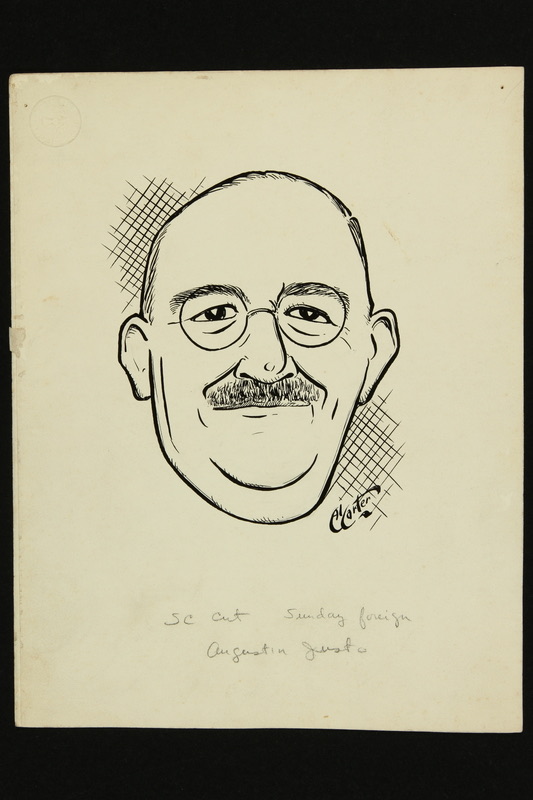 Al Carter
SC cut Sunday foreign
Augustin Justo